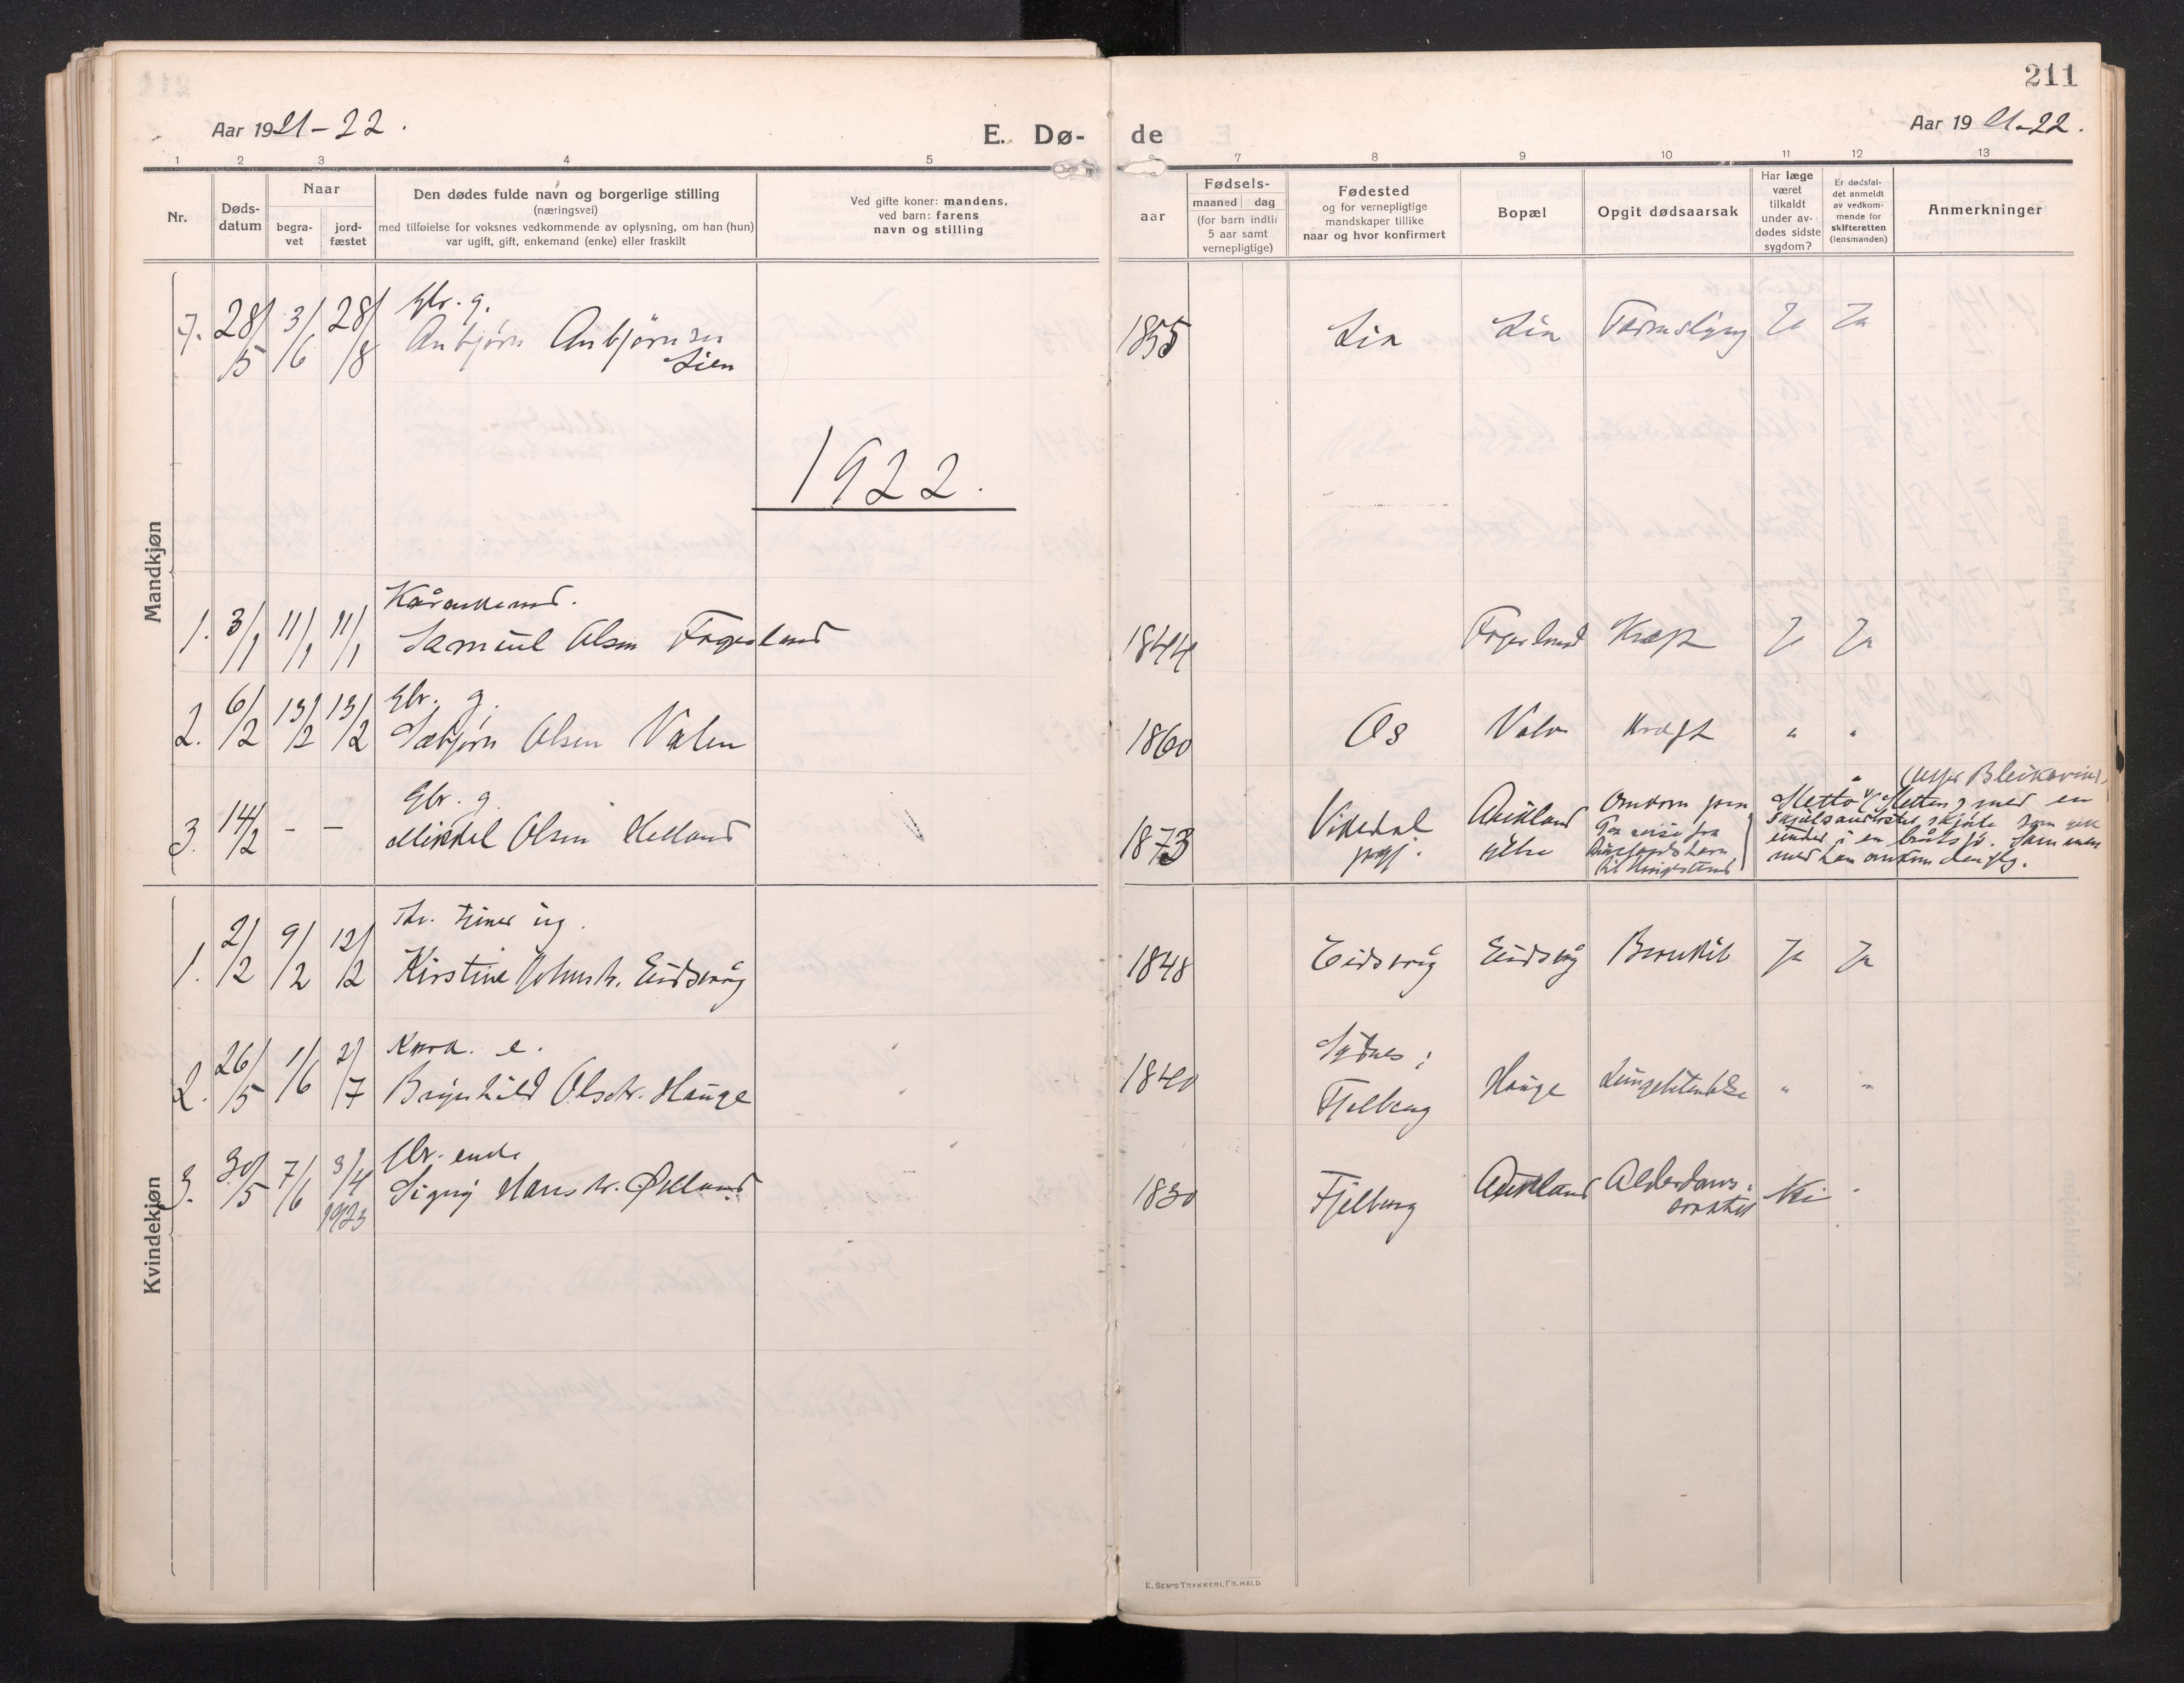 211
Aar 1921-22.
E. Dø-
de
Aar 1921-22.
1 2 3 4 5 6 7 8 9 10 11 12 13
Nr.
Døds-
datum
Naar
begra-
vet
jord-
fæstet
Den dødes fulde navn og borgerlige stilling
(næringsvei)
med tilføielse for voksnes vedkommende av oplysning, om han (hun)
var ugift, gift, enkemand (enke) eller fraskilt
Ved gifte koner: mandens,
ved barn: farens
navn og stilling
aar
Fødsels-
maaned dag
(for barn indtil
5 aar samt
vernepligtige)
Fødested
og for vernepligtige
mandskaper tillike
naar og hvor konfirmert
Bopæl
Opgit dødsaarsak
Har læge
været
tilkaldt
under av-
dødes sidste
sygdom?
Er dødsfal-
det anmeldt
av vedkom-
mende for
skifteretten
(lensmanden)
Anmerkninger
Mandkjøn
Gbr. g.
7. 28/5 3/6 28/8 Anbjørn Anbjørnsen
Lien
1855 Lia Lia Tarmslyng Ja Ja
1922.
Kårenkemd.
1. 3/1 11/1 11/1 Samuel Olsen Fagerland
1844 Fagerland Kræft Ja Ja
Gbr. g.
2. 6/2 13/2 13/2 Sæbjørn Olsen Valen
1860 Os Valen Kræft " "
Gbr. g.
3. 14/2 - - Mikkel Olsen Helland
1873 Vikedal
pgj.
Omkom paa
en reise fra
(Utfor
med en
skjøite som gik
under i en bråtsjö. Sammen
med han omkom
Kvindekjøn
1. 2/2 9/2 12/2 Kirstine Johnsdr. Eidsvåg
1848 Eidsvåg Eidsvåg Bronkit Ja Ja
Kaark. e.
2. 26/5 1/6 2/7 Brynhild Olsdr. Hauge
1840 Sydnes i
Fjelberg Hauge Lungebetændelse " "
Gbr. enke
3. 30/5 7/6 3/4 Signy Hansdr. Økland
1923
1830 Fjelberg Aukland Alderdoms-
svakhet Nei "
E. SEM'S TRYKKERI, FR.HALD